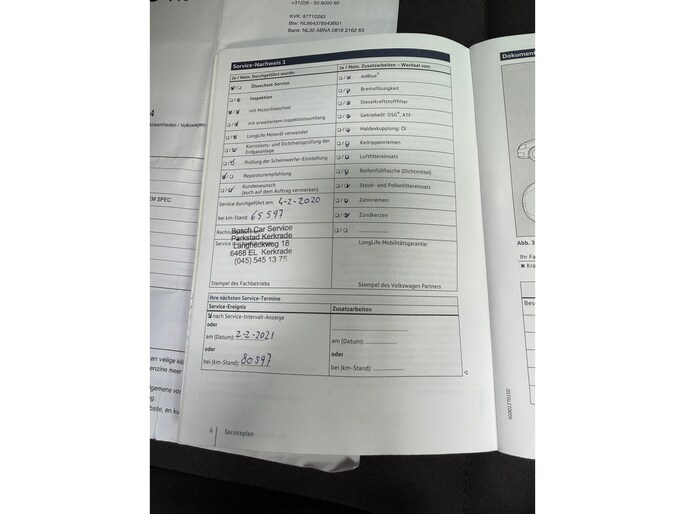 +31(0)6 - 50 6000 60
KVK: 87710293
Btw: NL864378543B01
Bank: NL30 ABNA 0818 2162 63
Service-Nachweis 1
Ja / Nein. Durchgeführt wurde:
Ölwechsel-Service
Inspektion
mit Motorölwechsel
mit erweitertem Inspektionsumfang
LongLife Motoröl verwendet
Korrosions- und Dichtheitsprüfung der
Erdgasanlage
Prüfung der Scheinwerfer-Einstellung
Reparaturempfehlung
Kundenwunsch
(auch auf dem Auftrag vermerken)
Service durchgeführt am: 4-2-2020
bei km-Stand: 65 597
Bosch Car Service
Parkstad Kerkrade
Langheckweg 18
6468 EL Kerkrade
(045) 545 13 75
Stempel des Fachbetriebs
Ja / Nein. Zusatzarbeiten – Wechsel von:
AdBlue®
Bremsflüssigkeit
Dieselkraftstofffilter
Getriebeöl: DSG®, ATF
Haldexkupplung: Öl
Keilrippenriemen
Luftfiltereinsatz
Reifenfüllflasche (Dichtmittel)
Staub- und Pollenfiltereinsatz
Zahnriemen
Zündkerzen
LongLife Mobilitätsgarantie:
Stempel des Volkswagen Partners
Ihre nächsten Service-Termine
Service-Ereignis
nach Service-Intervall-Anzeige
oder
am (Datum): 2-2-2021
oder
bei (km-Stand): 80597
Zusatzarbeiten
am (Datum):
oder
bei (km-Stand):
6 Serviceplan
Dokument
Abb. 3
Ihr Fa
× Kra
Bes
4
EM SPEC